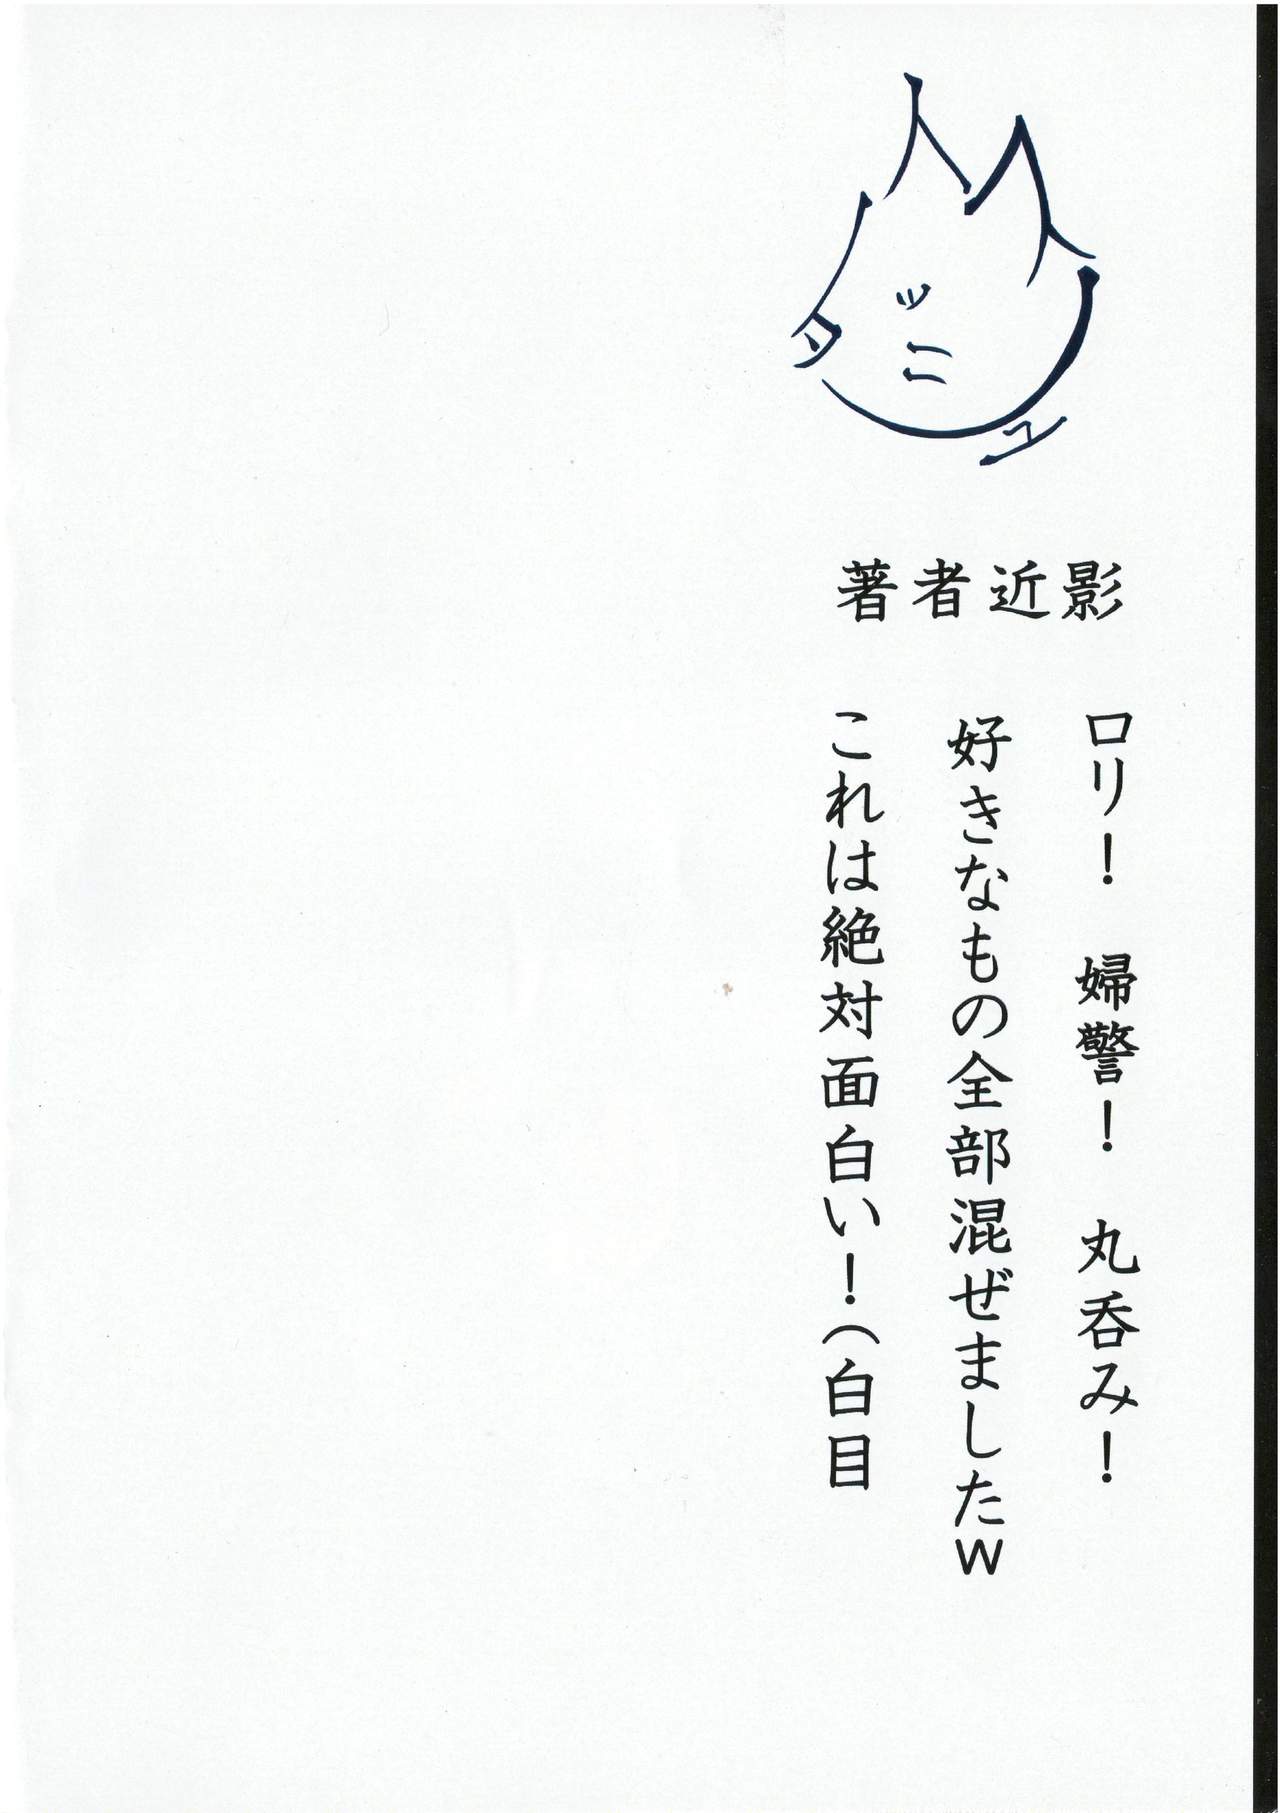 著者近影
ロリ！　婦警！　丸呑み！
好きなもの全部混ぜましたｗ
これは絶対面白い！（白目